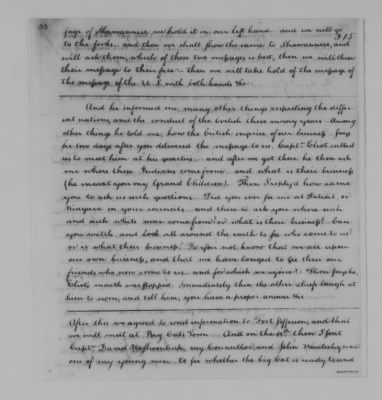 33
315
page of Shawannese, we hold it in our left hand and we will go
to the forks, and then we shall show the same to Shawannese, and
will ask them, which of these two messages is best, then we will throw
their message to their face — then we will take hold of the message of
the message of the U.S. with both hands &c
And he informed me, many other things respecting the differ-
ent nations, and the conduct of the british these many years. Among
other things he told me, how the british enquire of our business. Says
he two days after you delivered the message to us, Capt. Eliot called
us to meet him at his quarters. and after we got there he then ask
me where these Indians come from, and what is their business
(he meant you my Grand Children). Then I reply'd how came
you to ask us such questions. Did you ever see me at Detroit, or
Niagara in your councils, and there to ask you where such
and such white man come from? or what is their business? Can
you watch, and look all around the earth to see who come to us?
or is what their business? Do you not know that we are upon
our own business, and that we have longed to see these our
friends who now come to us. and for which we rejoice? Then says he
Eliot's mouth was stopped. Immediately then the other chiefs laugh at
him to scorn, and tell him, you have a proper answer &c
After this we agreed to send information to Fort Jefferson, and that
we will meet at Big Cat's Town. And on the then I sent
Capt. David my Counsellor, and John
one of my young men to see whether the big Cat is ready to send